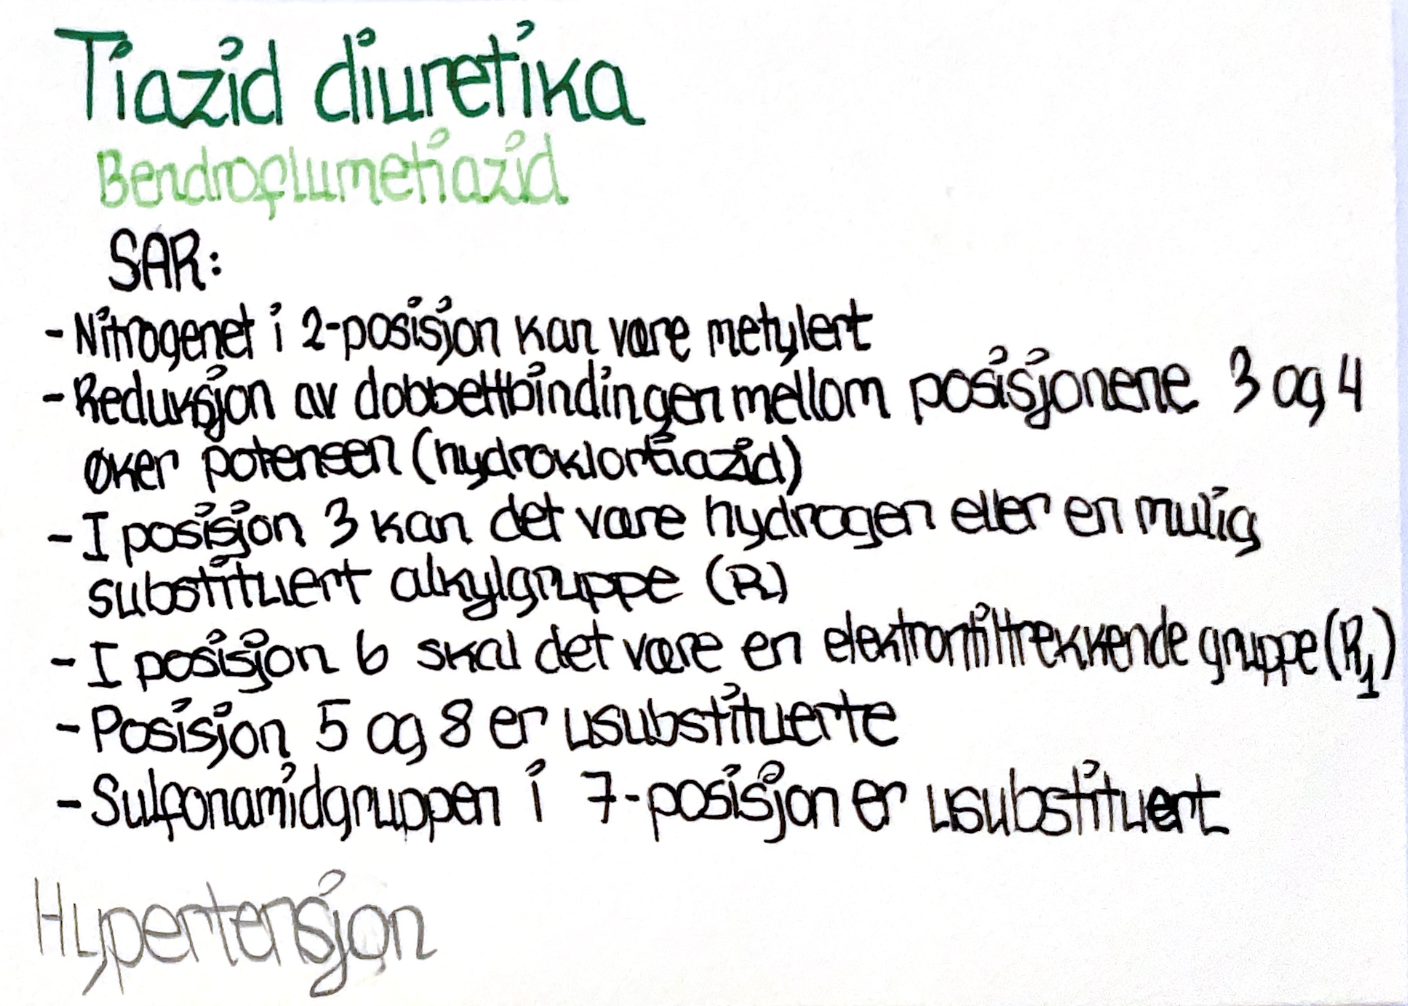 Tiazid diuretika
Bendroflumetiazid
SAR:
- Nitrogenet i 2-posisjon kan være metylert
- Reduksjon av dobbeltbindingen mellom posisjonene 3 og 4
øker potensen (hydroklortiazid)
- I posisjon 3 kan det være hydrogen eller en mulig
substituert alkylgruppe (R)
- I posisjon 6 skal det være en elektrontiltrekkende gruppe (R₁)
- Posisjon 5 og 8 er usubstituerte
- Sulfonamidgruppen i 7-posisjon er usubstituert
Hypertensjon